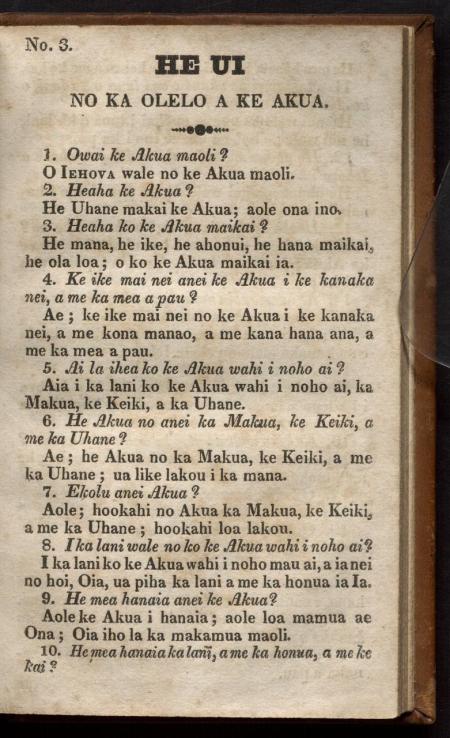 No. 3.
HE UI
NO KA OLELO A KE AKUA.
1. Owai ke Akua maoli?
O IEHOVA wale no ke Akua maoli.
2. Heaha ke Akua?
He Uhane makai ke Akua; aole ona ino.
3. Heaha ko ke Akua maikai?
He mana, he ike, he ahonui, he hana maikai,
he ola loa; o ko ke Akua maikai ia.
4. Ke ike mai nei anei ke Akua i ke kanaka
nei, a me ka mea a pau?
Ae; ke ike mai nei no ke Akua i ke kanaka
nei, a me kona manao, a me kana hana ana, a
me ka mea a pau.
5. Ai la ihea ko ke Akua wahi i noho ai?
Aia i ka lani ko ke Akua wahi i noho ai, ka
Makua, ke Keiki, a ka Uhane.
6. He Akua no anei ka Makua, ke Keiki, a
me ka Uhane?
Ae; he Akua no ka Makua, ke Keiki, a me
ka Uhane; ua like lakou i ka mana.
7. Ekolu anei Akua?
Aole; hookahi no Akua ka Makua, ke Keiki,
a me ka Uhane; hookahi loa lakou.
8. I ka lani wale no ko ke Akua wahi i noho ai?
I ka lani ko ke Akua wahi i noho mau ai, a ia nei
no hoi, Oia, ua piha ka lani a me ka honua ia Ia.
9. He mea hanaia anei ke Akua?
Aole ke Akua i hanaia; aole loa mamua ae
Ona; Oia iho la ka makamua maoli.
10. He mea hanaia ka lani, a me ka honua, a me ke
kai?